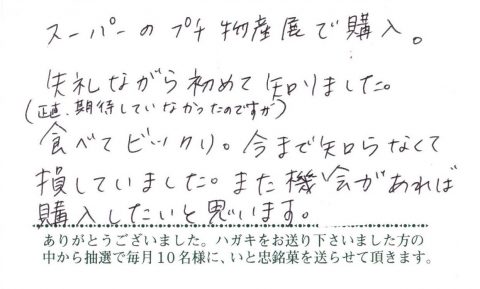 スーパーのプチ物産展で購入。
失礼ながら初めて知りました。
(正直、期待していなかったのですが)
食べてビックリ。今まで知らなくて
損していました。また機会があれば
購入したいと思います。
ありがとうございました。ハガキをお送り下さいました方の
中から抽選で毎月10名様に、いと忠銘菓を送らせて頂きます。